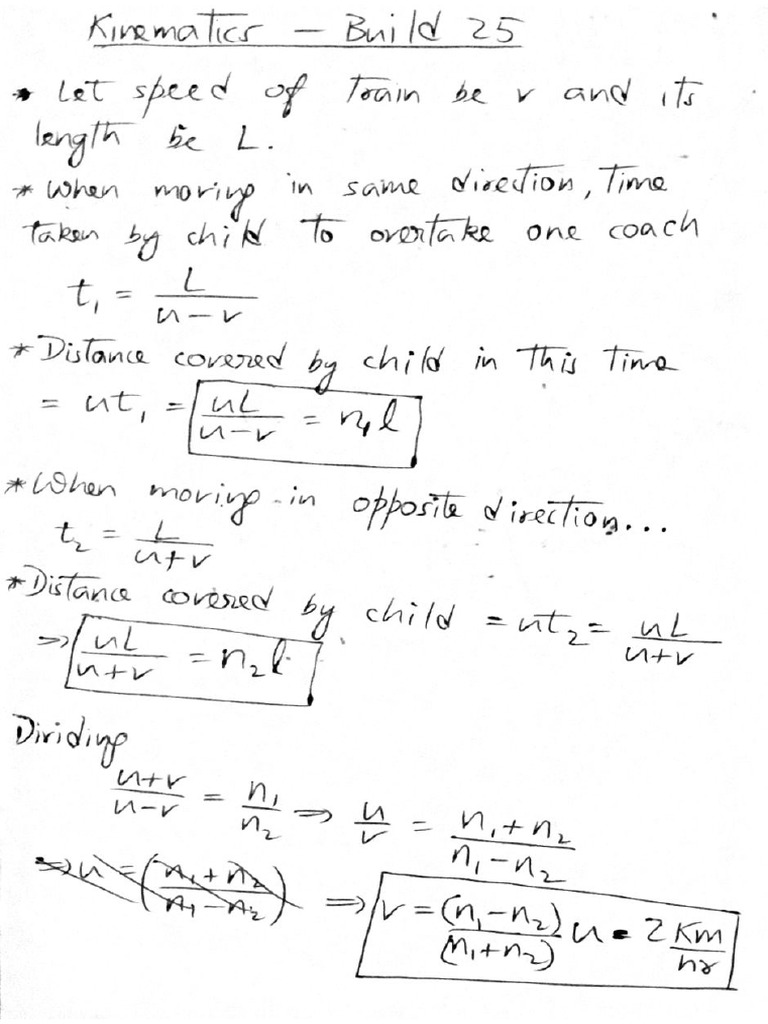 Kinematics – Build 25
* Let speed of Train be v and its
length be L.
* When moving in same direction, Time
taken by child to overtake one coach
t₁ = L/(u-v)
* Distance covered by child in This Time
= ut₁ = uL/(u-v) = n₁l
* When moving in opposite direction...
t₂ = L/(u+v)
* Distance covered by child = ut₂ = uL/(u+v)
⇒ uL/(u+v) = n₂l
Dividing
(u+v)/(u-v) = n₁/n₂ ⇒ u/v = (n₁+n₂)/(n₁-n₂)
⇒ u = ((n₁+n₂)/(n₁-n₂)) ⇒ v = (n₁-n₂)/(n₁+n₂) u = 2 Km/hr